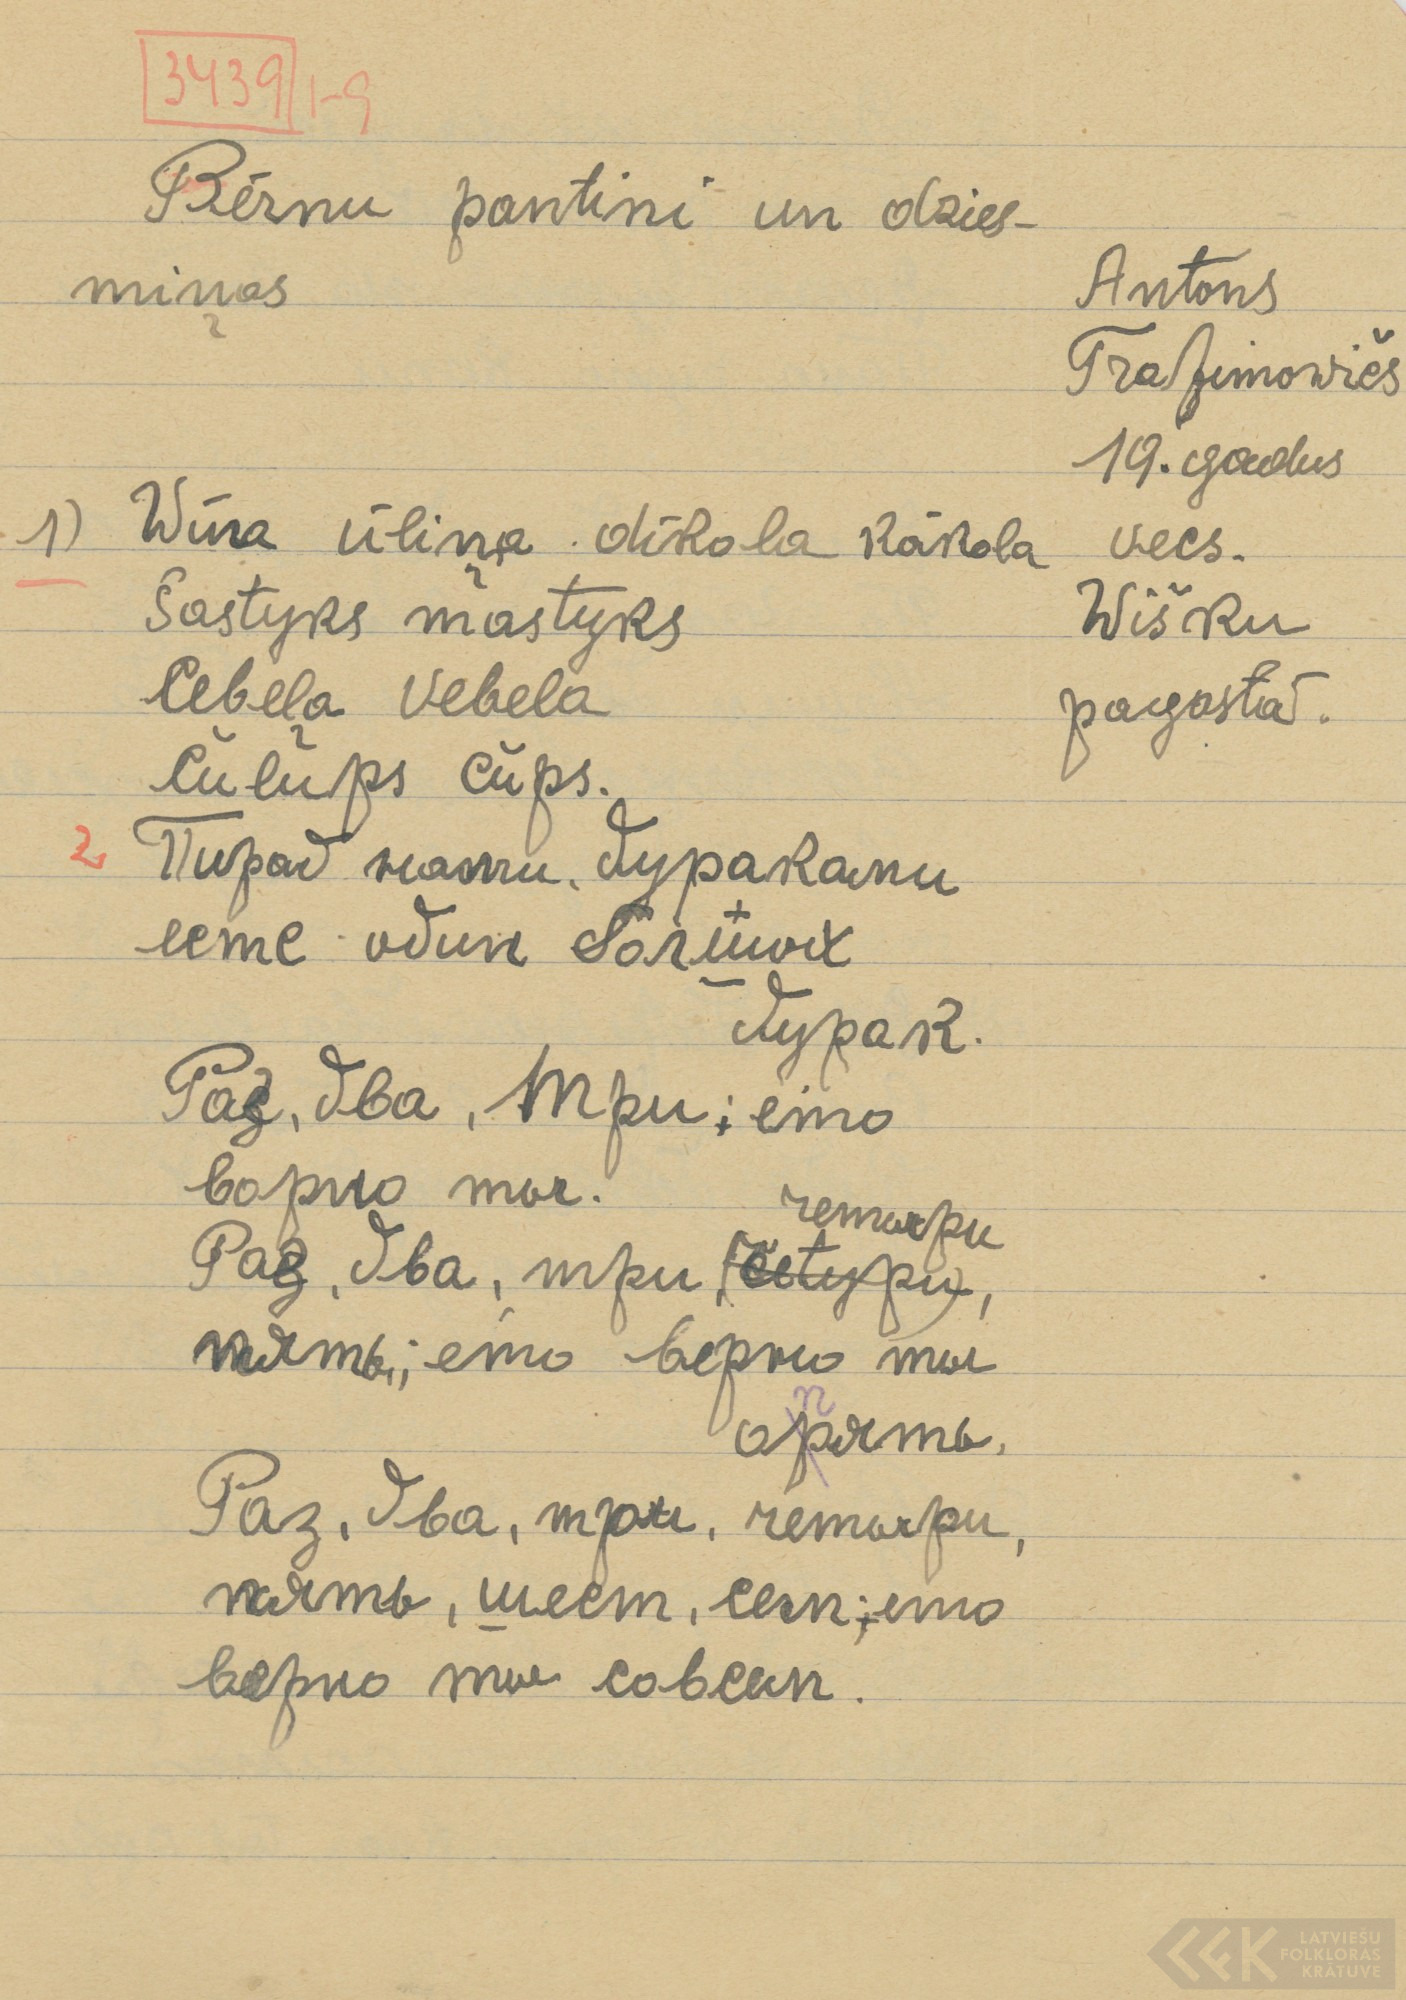 3439 1-9
Bērnu pantini un dzies-
miņas
Antons
Trafimowičs
19. gadus
vecs.
Wišku
pagastā.
1) Wīna ūliņa dīkola kākola
Šastyks mastyks
Cebeļa vebela
Čuļups čups.
2 Пирад нами дураками
есте один
дурак.
Раз, два, три; ето
ворно ты.
Раз, два, три, (četyри), четыри
пять; ето верно ты
опять.
Раз, два, три, четыри,
пять, шест, сем; ето
верно ты совсем.
LATVIEŠU
FOLKLORAS
KRĀTUVE